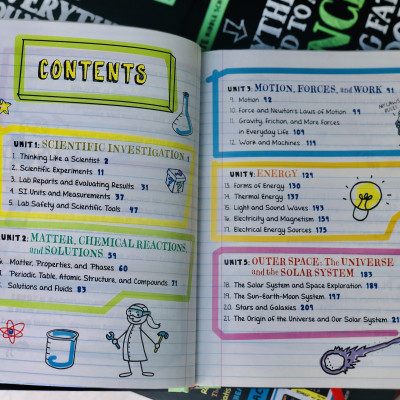 CONTENTS
UNIT 1: SCIENTIFIC INVESTIGATION 1
1. Thinking Like a Scientist 2
2. Scientific Experiments 11
3. Lab Reports and Evaluating Results 31
4. SI Units and Measurements 37
5. Lab Safety and Scientific Tools 47
UNIT 2: MATTER, CHEMICAL REACTIONS,
and SOLUTIONS 59
Matter, Properties, and Phases 60
Periodic Table, Atomic Structure, and Compounds 71
Solutions and Fluids 83
UNIT 3: MOTION, FORCES, and WORK 91
9. Motion 92
10. Force and Newton's Laws of Motion 99
11. Gravity, Friction, and More Forces
in Everyday Life 109
12. Work and Machines 119
UNIT 4: ENERGY 129
13. Forms of Energy 130
14. Thermal Energy 137
15. Light and Sound Waves 143
16. Electricity and Magnetism 154
17. Electrical Energy Sources 173
UNIT 5: OUTER SPACE: The UNIVERSE
and the SOLAR SYSTEM 183
18. The Solar System and Space Exploration 184
19. The Sun-Earth-Moon System 197
20. Stars and Galaxies 209
21. The Origin of the Universe and Our Solar System